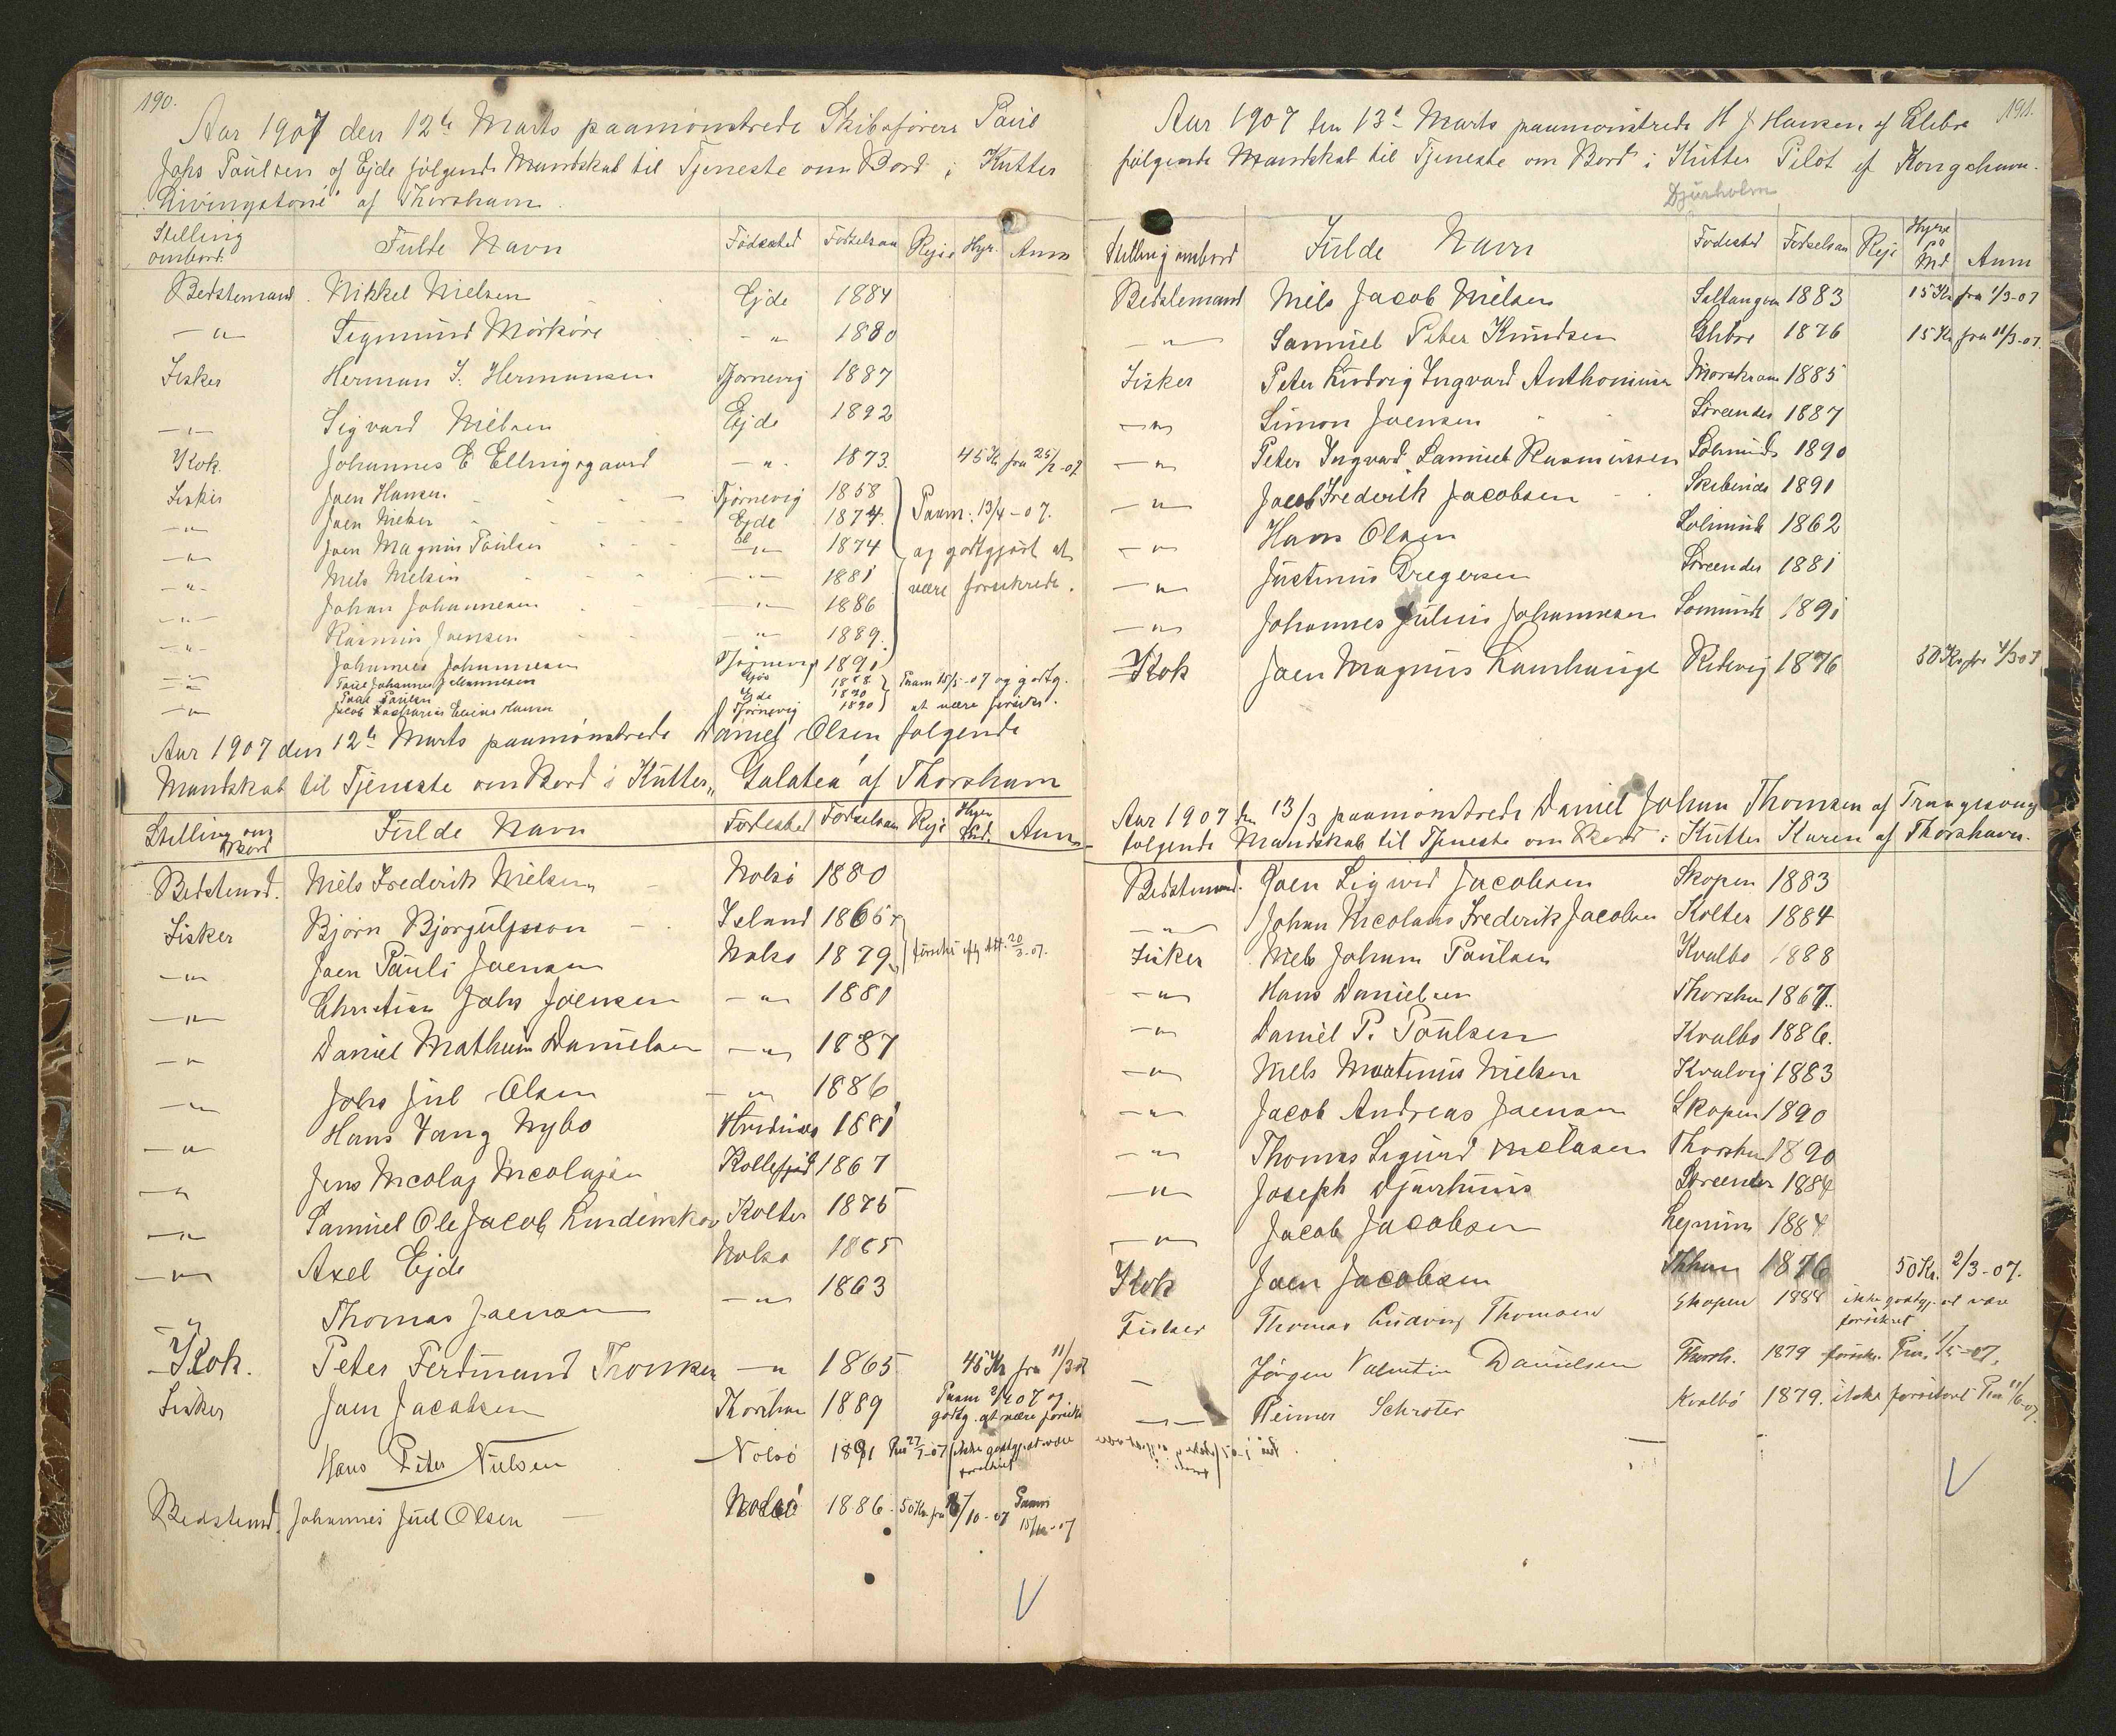 190.
Aar 1907 den 12te Marts paamönstrede Skibsförer Paul
Johs Paulsen af Ejde fölgende Mandskab til Tjeneste om Bord i Kutter
"Livingstone" af Thorshavn.
Stilling ombord. Fulde Navn Födested Födselsaar Rejse Hyre Anm
Bedstemand Mikkel Nielsen Ejde 1884
— " — Sigmund Mörköre — " 1880
Fisker Herman J. Hermansen Tjörnevig 1887
— " — Sigvard Nielsen Ejde 1892
Kok. Johannes E Ellingsgaard — " — 1873. 45 Kr fra 25/2-07
Fisker Joen Hansen Tjörnevig 1858
— " — Joen Nielsen Ejde 1874. Paam: 13/4-07.
— " — Joen Magnus Paulsen — " — 1874 og godtgjort at
— " — Niels Nielsen — " — 1881 være forsikrede.
— " — Johan Johannesen — " — 1886
— " — Rasmus Joensen — " — 1889.
— " — Johannes Johannesen Tjörnevig 1891
— " — Poul Johannes Johannesen Gjov 1888 Paam 15/5-07 og godtg.
Paul Paulsen Ejde 1890 at være forsikr.
— " — Jacob Zacharias Hansen Tjörnevig 1890
Aar 1907 den 12te Marts paamönstrede Daniel Olsen fölgende
Mandskab til Tjeneste om Bord i Kutter "Galatea" af Thorshavn
Stilling om Bord Fulde Navn Födested Födselsaar Rejse Hyre Md. Anm
Bedstemd. Niels Frederik Nielsen Nolsö 1880
Fisker Björn Björgulfsson Island 1865
— " — Joen Pauli Joensen Nolsö 1879 20/3-07.
— " — Christian Johs Joensen — " — 1881
— " — Daniel Mathius Danielsen — " — 1887
— " — Johs Jul Olsen — " — 1886
— " — Hans Vang Nybo Hvidenæs 1881
— " — Jens Nicolaj Nicolajsen Kollefjord 1867
— " — Samuel Ole Jacob Lindenskov Kolter 1875
— " — Axel Ejde Nolsö 1865
— " — Thomas Joensen — " — 1863
Kok. Peter Ferdinand Thomsen — " 1865 45 Kr fra 11/3 07
Fisker Joen Jacobsen Thorshavn 1889 Paam 2/4 07 og godtg. at være forsikr
Hans Peter Nielsen Nolsö 1891 Paa 27/7-07 ikke godtgj. at være forsikret
Bedstemd. Johannes Juul Olsen Nolsö 1886. 50 Kr. fra /10-07 Paam 15/10-07
191.
Aar 1907 den 13de Marts paamönstrede H J Hansen af Glibre
fölgende Mandskab til Tjeneste om Bord i Kutter Pilot af Kongshavn.
Djurholm
Stilling ombord Fulde Navn Födested Födselsaar Rejse Hyre på Md Anm
Bedstemand Niels Jacob Nielsen Saltangen 1883 15 Kr fra 1/3-07
— " — Samuel Peter Knudsen Glibre 1876 15 Kr fra 11/3-07.
Fisker Peter Ludvig Ingvard Anthonius Morskranes 1885
— " — Simon Joensen Söreender 1887
— " — Peter Ingvard Samuel Rasmussen Solmunde 1890
— " — Jacob Frederik Jacobsen Skibenæs 1891
— " — Hans Olsen Solmunde 1862
— " — Justinus Gregersen Söreender 1881
— " — Johannes Julius Johannesen Solmunde 1891
Kok Joen Magnus Lamhauge Ridevig 1876 50 Kr fra 4/3 07
Aar 1907 den 13/3 paamönstrede Daniel Johan Thomsen af Trangisvaag
fölgende Mandskab til Tjeneste om Bord i Kutter Karen af Thorshavn.
Bedstemand. Joen Sigurd Jacobsen Skopen 1883
— " — Johan Nicolaus Frederik Jacobsen Kolter 1884
Fisker Niels Johan Paulsen Kvalbö 1888
— " — Hans Danielsen Thorshavn 1867.
— " — Daniel P. Poulsen Kvalbö 1886.
— " — Niels Martinus Nielsen Kvalvig 1883
— " — Jacob Andreas Joensen Skopen 1890
— " — Thomas Sigurd Niclasen Thorshavn 1890
— " — Joseph Djurhuus Söreender 1884
— " — Jacob Jacobsen Lejnum 1884
Kok Joen Jacobsen Thhavn 1876 50 Kr. 2/3-07.
Fisker Thomas Ludvig Thomsen Skopen 1888 ikke godtgj. at være forsikret
— Jörgen Valentin Danielsen Thorsh. 1879 forsikr. Paa. 1/5-07.
— " — Reimer Schröter Kvalbö 1879. ikke forsikret Paa 11/6-07.